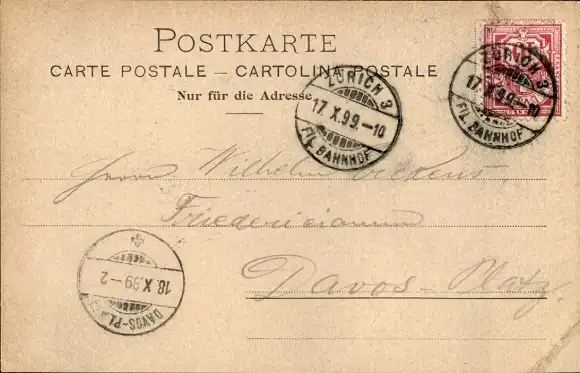 POSTKARTE
CARTE POSTALE – CARTOLINA POSTALE
Nur für die Adresse
ZÜRICH 3
17. X. 99.–10
FIL. BAHNHOF
ZÜRICH 3
17. X. 99.–10
FIL. BAHNHOF
Herrn Wilhelm
Fridericianum
Davos-Platz
18. X. 99–2
DAVOS-PLATZ